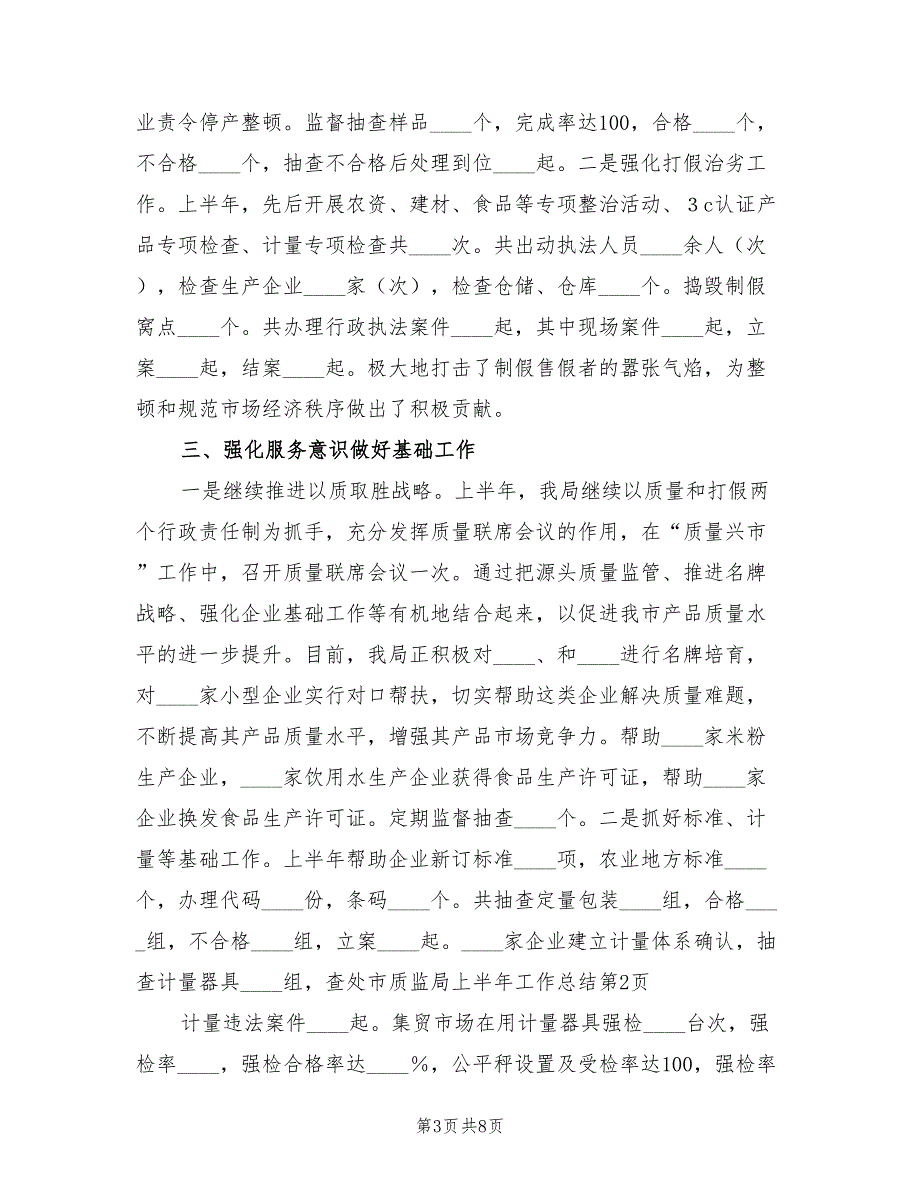 业责令停产整顿。监督抽查样品____个，完成率达100，合格____个，
不合格____个，抽查不合格后处理到位____起。二是强化打假治劣工
作。上半年，先后开展农资、建材、食品等专项整治活动、3c认证产
品专项检查、计量专项检查共____次。共出动执法人员____余人（次
），检查生产企业____家（次），检查仓储、仓库____个。捣毁制假
窝点____个。共办理行政执法案件____起，其中现场案件____起，立
案____起，结案____起。极大地打击了制假售假者的嚣张气焰，为整
顿和规范市场经济秩序做出了积极贡献。
三、强化服务意识做好基础工作
一是继续推进以质取胜战略。上半年，我局继续以质量和打假两
个行政责任制为抓手，充分发挥质量联席会议的作用，在“质量兴市
”工作中，召开质量联席会议一次。通过把源头质量监管、推进名牌
战略、强化企业基础工作等有机地结合起来，以促进我市产品质量水
平的进一步提升。目前，我局正积极对____、和____进行名牌培育，
对____家小型企业实行对口帮扶，切实帮助这类企业解决质量难题，
不断提高其产品质量水平，增强其产品市场竞争力。帮助____家米粉
生产企业，____家饮用水生产企业获得食品生产许可证，帮助____家
企业换发食品生产许可证。定期监督抽查____个。二是抓好标准、计
量等基础工作。上半年帮助企业新订标准____项，农业地方标准____
个，办理代码____份，条码____个。共抽查定量包装____组，合格___
_组，不合格____组，立案____起。____家企业建立计量体系确认，抽
查计量器具____组，查处市质监局上半年工作总结第2页
计量违法案件____起。集贸市场在用计量器具强检____台次，强
检率____，强检合格率达____％，公平秤设置及受检率达100，强检率
第3页 共8页